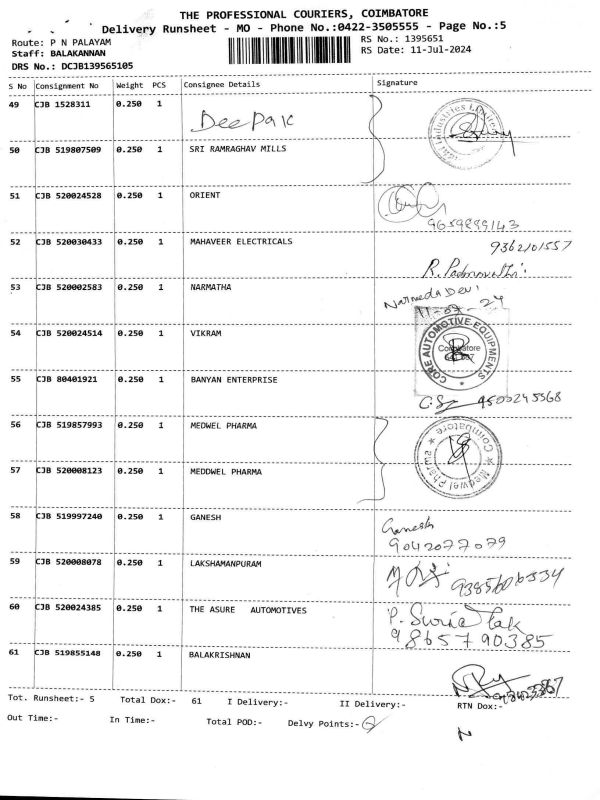 THE PROFESSIONAL COURIERS, COIMBATORE
Delivery Runsheet - MO - Phone No.:0422-3505555 - Page No.:5
Route: P N PALAYAM
RS No.: 1395651
Staff: BALAKANNAN
RS Date: 11-Jul-2024
DRS No.: DCJB139565105
S No Consignment No Weight PCS Consignee Details Signature
49 CJB 1528311 0.250 1 Deepak
50 CJB 519807509 0.250 1 SRI RAMRAGHAV MILLS
51 CJB 520024528 0.250 1 ORIENT
9659889143
52 CJB 520030433 0.250 1 MAHAVEER ELECTRICALS 9362101557
R. Padmavathi
53 CJB 520002583 0.250 1 NARMATHA Narmeda Devi
11-07-24
54 CJB 520024514 0.250 1 VIKRAM
CORE AUTOMOTIVE EQUIPMENTS
Coimbatore
55 CJB 80401921 0.250 1 BANYAN ENTERPRISE
9500245568
56 CJB 519857993 0.250 1 MEDWEL PHARMA
Medwel Pharma
Coimbatore
57 CJB 520008123 0.250 1 MEDDWEL PHARMA
58 CJB 519997240 0.250 1 GANESH Ganesh
9042077079
59 CJB 520008078 0.250 1 LAKSHAMANPURAM
9385606534
60 CJB 520024385 0.250 1 THE ASURE AUTOMOTIVES P. Suria
9865790385
61 CJB 519855148 0.250 1 BALAKRISHNAN
Tot. Runsheet:- 5 Total Dox:- 61 I Delivery:- II Delivery:- RTN Dox:-
Out Time:- In Time:- Total POD:- Delvy Points:-